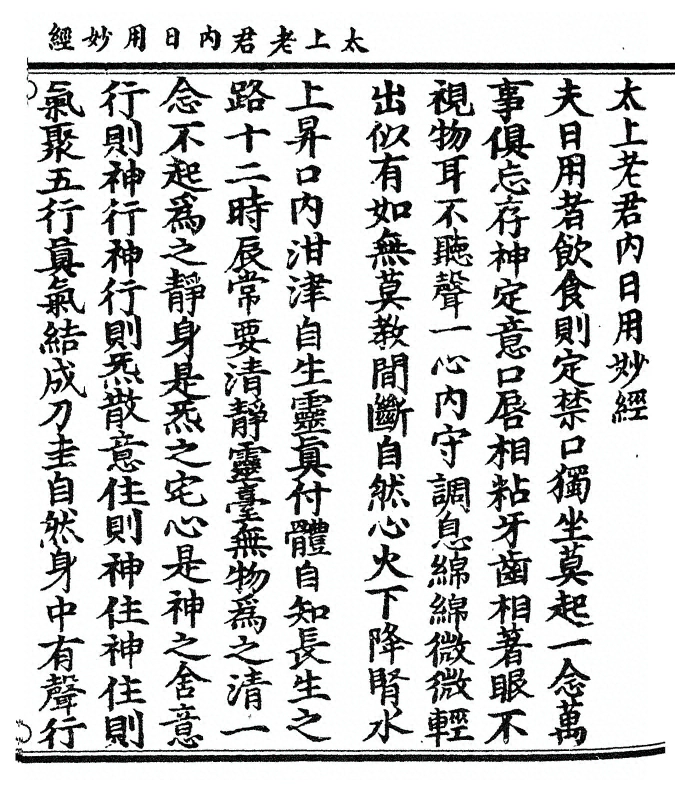 太上老君内日用妙經
太上老君内日用妙經
夫日用者飲食則定禁口獨坐莫起一念萬
事俱忘存神定意口唇相粘牙齒相著眼不
視物耳不聽聲一心内守調息綿綿微微輕
出似有如無莫教間斷自然心火下降腎水
上昇口内泔津自生靈眞付體自知長生之
路十二時辰常要清靜靈臺無物爲之清一
念不起爲之靜身是炁之宅心是神之舍意
行則神行神行則炁散意住則神住神住則
氣聚五行眞氣結成刀圭自然身中有聲行